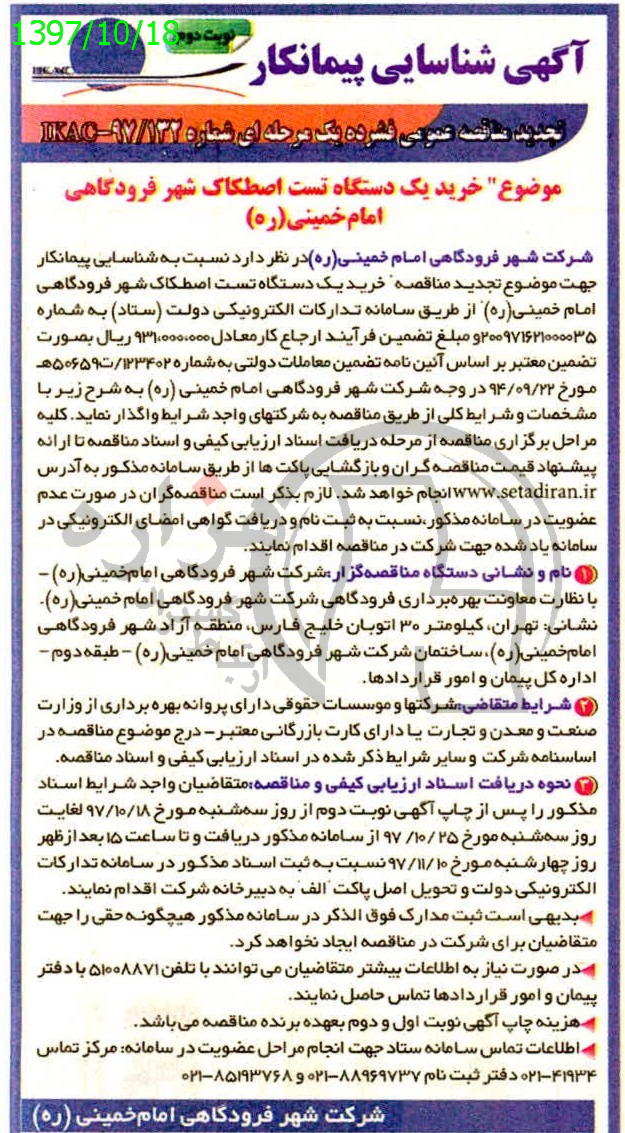 1397/10/18
نوبت دوم
آگهی شناسایی پیمانکار
تجدید مناقصه عمومی فشرده یک مرحله ای شماره IKAC-۹۷/۱۳۲
موضوع" خرید یک دستگاه تست اصطکاک شهر فرودگاهی
امام خمینی(ره)
شرکت شهر فرودگاهی امام خمینی(ره)در نظر دارد نسبت به شناسایی پیمانکار
جهت موضوع تجدید مناقصه" خرید یک دستگاه تست اصطکاک شهر فرودگاهی
امام خمینی(ره)" از طریق سامانه تدارکات الکترونیکی دولت (ستاد) به شماره
۲۰۰۹۷۱۶۲۱۰۰۰۰۳۵و مبلغ تضمین فرآیند ارجاع کار معادل ۹۳۱،۰۰۰،۰۰۰ ریال بصورت
تضمین معتبر بر اساس آئین نامه تضمین معاملات دولتی به شماره ۱۲۳۴۰۲/ت۵۰۶۵۹هـ
مورخ ۹۴/۰۹/۲۲ در وجه شرکت شهر فرودگاهی امام خمینی (ره) به شرح زیر با
مشخصات و شرایط کلی از طریق مناقصه به شرکتهای واجد شرایط واگذار نماید. کلیه
مراحل برگزاری مناقصه از مرحله دریافت اسناد ارزیابی کیفی و اسناد مناقصه تا ارائه
پیشنهاد قیمت مناقصه گران و بازگشایی پاکت ها از طریق سامانه مذکور به آدرس
www.setadiran.irانجام خواهد شد. لازم بذکر است مناقصه‌گران در صورت عدم
عضویت در سامانه مذکور،نسبت به ثبت نام و دریافت گواهی امضای الکترونیکی در
سامانه یاد شده جهت شرکت در مناقصه اقدام نمایند.
۱) نام و نشانی دستگاه مناقصه‌گزار:شرکت شهر فرودگاهی امام‌خمینی(ره) –
با نظارت معاونت بهره‌برداری فرودگاهی شرکت شهر فرودگاهی امام خمینی(ره).
نشانی: تهران، کیلومتر ۳۰ اتوبان خلیج فارس، منطقه آزاد شهر فرودگاهی
امام‌خمینی(ره)، ساختمان شرکت شهر فرودگاهی امام خمینی(ره) – طبقه دوم –
اداره کل پیمان و امور قراردادها.
۲) شرایط متقاضی:شرکتها و موسسات حقوقی دارای پروانه بهره برداری از وزارت
صنعت و معدن و تجارت یا دارای کارت بازرگانی معتبر – درج موضوع مناقصه در
اساسنامه شرکت و سایر شرایط ذکر شده در اسناد ارزیابی کیفی و اسناد مناقصه.
۳) نحوه دریافت اسناد ارزیابی کیفی و مناقصه:متقاضیان واجد شرایط اسناد
مذکور را پس از چاپ آگهی نوبت دوم از روز سه‌شنبه مورخ ۹۷/۱۰/۱۸ لغایت
روز سه‌شنبه مورخ ۲۵ /۱۰/ ۹۷ از سامانه مذکور دریافت و تا ساعت ۱۵ بعد از ظهر
روز چهارشنبه مورخ ۹۷/۱۱/۱۰ نسبت به ثبت اسناد مذکور در سامانه تدارکات
الکترونیکی دولت و تحویل اصل پاکت "الف" به دبیرخانه شرکت اقدام نمایند.
◄بدیهی است ثبت مدارک فوق الذکر در سامانه مذکور هیچگونه حقی را جهت
متقاضیان برای شرکت در مناقصه ایجاد نخواهد کرد.
◄در صورت نیاز به اطلاعات بیشتر متقاضیان می توانند با تلفن ۵۱۰۰۸۸۷۱ با دفتر
پیمان و امور قراردادها تماس حاصل نمایند.
◄هزینه چاپ آگهی نوبت اول و دوم بعهده برنده مناقصه می‌باشد.
◄اطلاعات تماس سامانه ستاد جهت انجام مراحل عضویت در سامانه: مرکز تماس
۰۲۱-۴۱۹۳۴ دفتر ثبت نام ۸۸۹۶۹۷۳۷-۰۲۱ و ۸۵۱۹۳۷۶۸-۰۲۱
شرکت شهر فرودگاهی امام‌خمینی (ره)